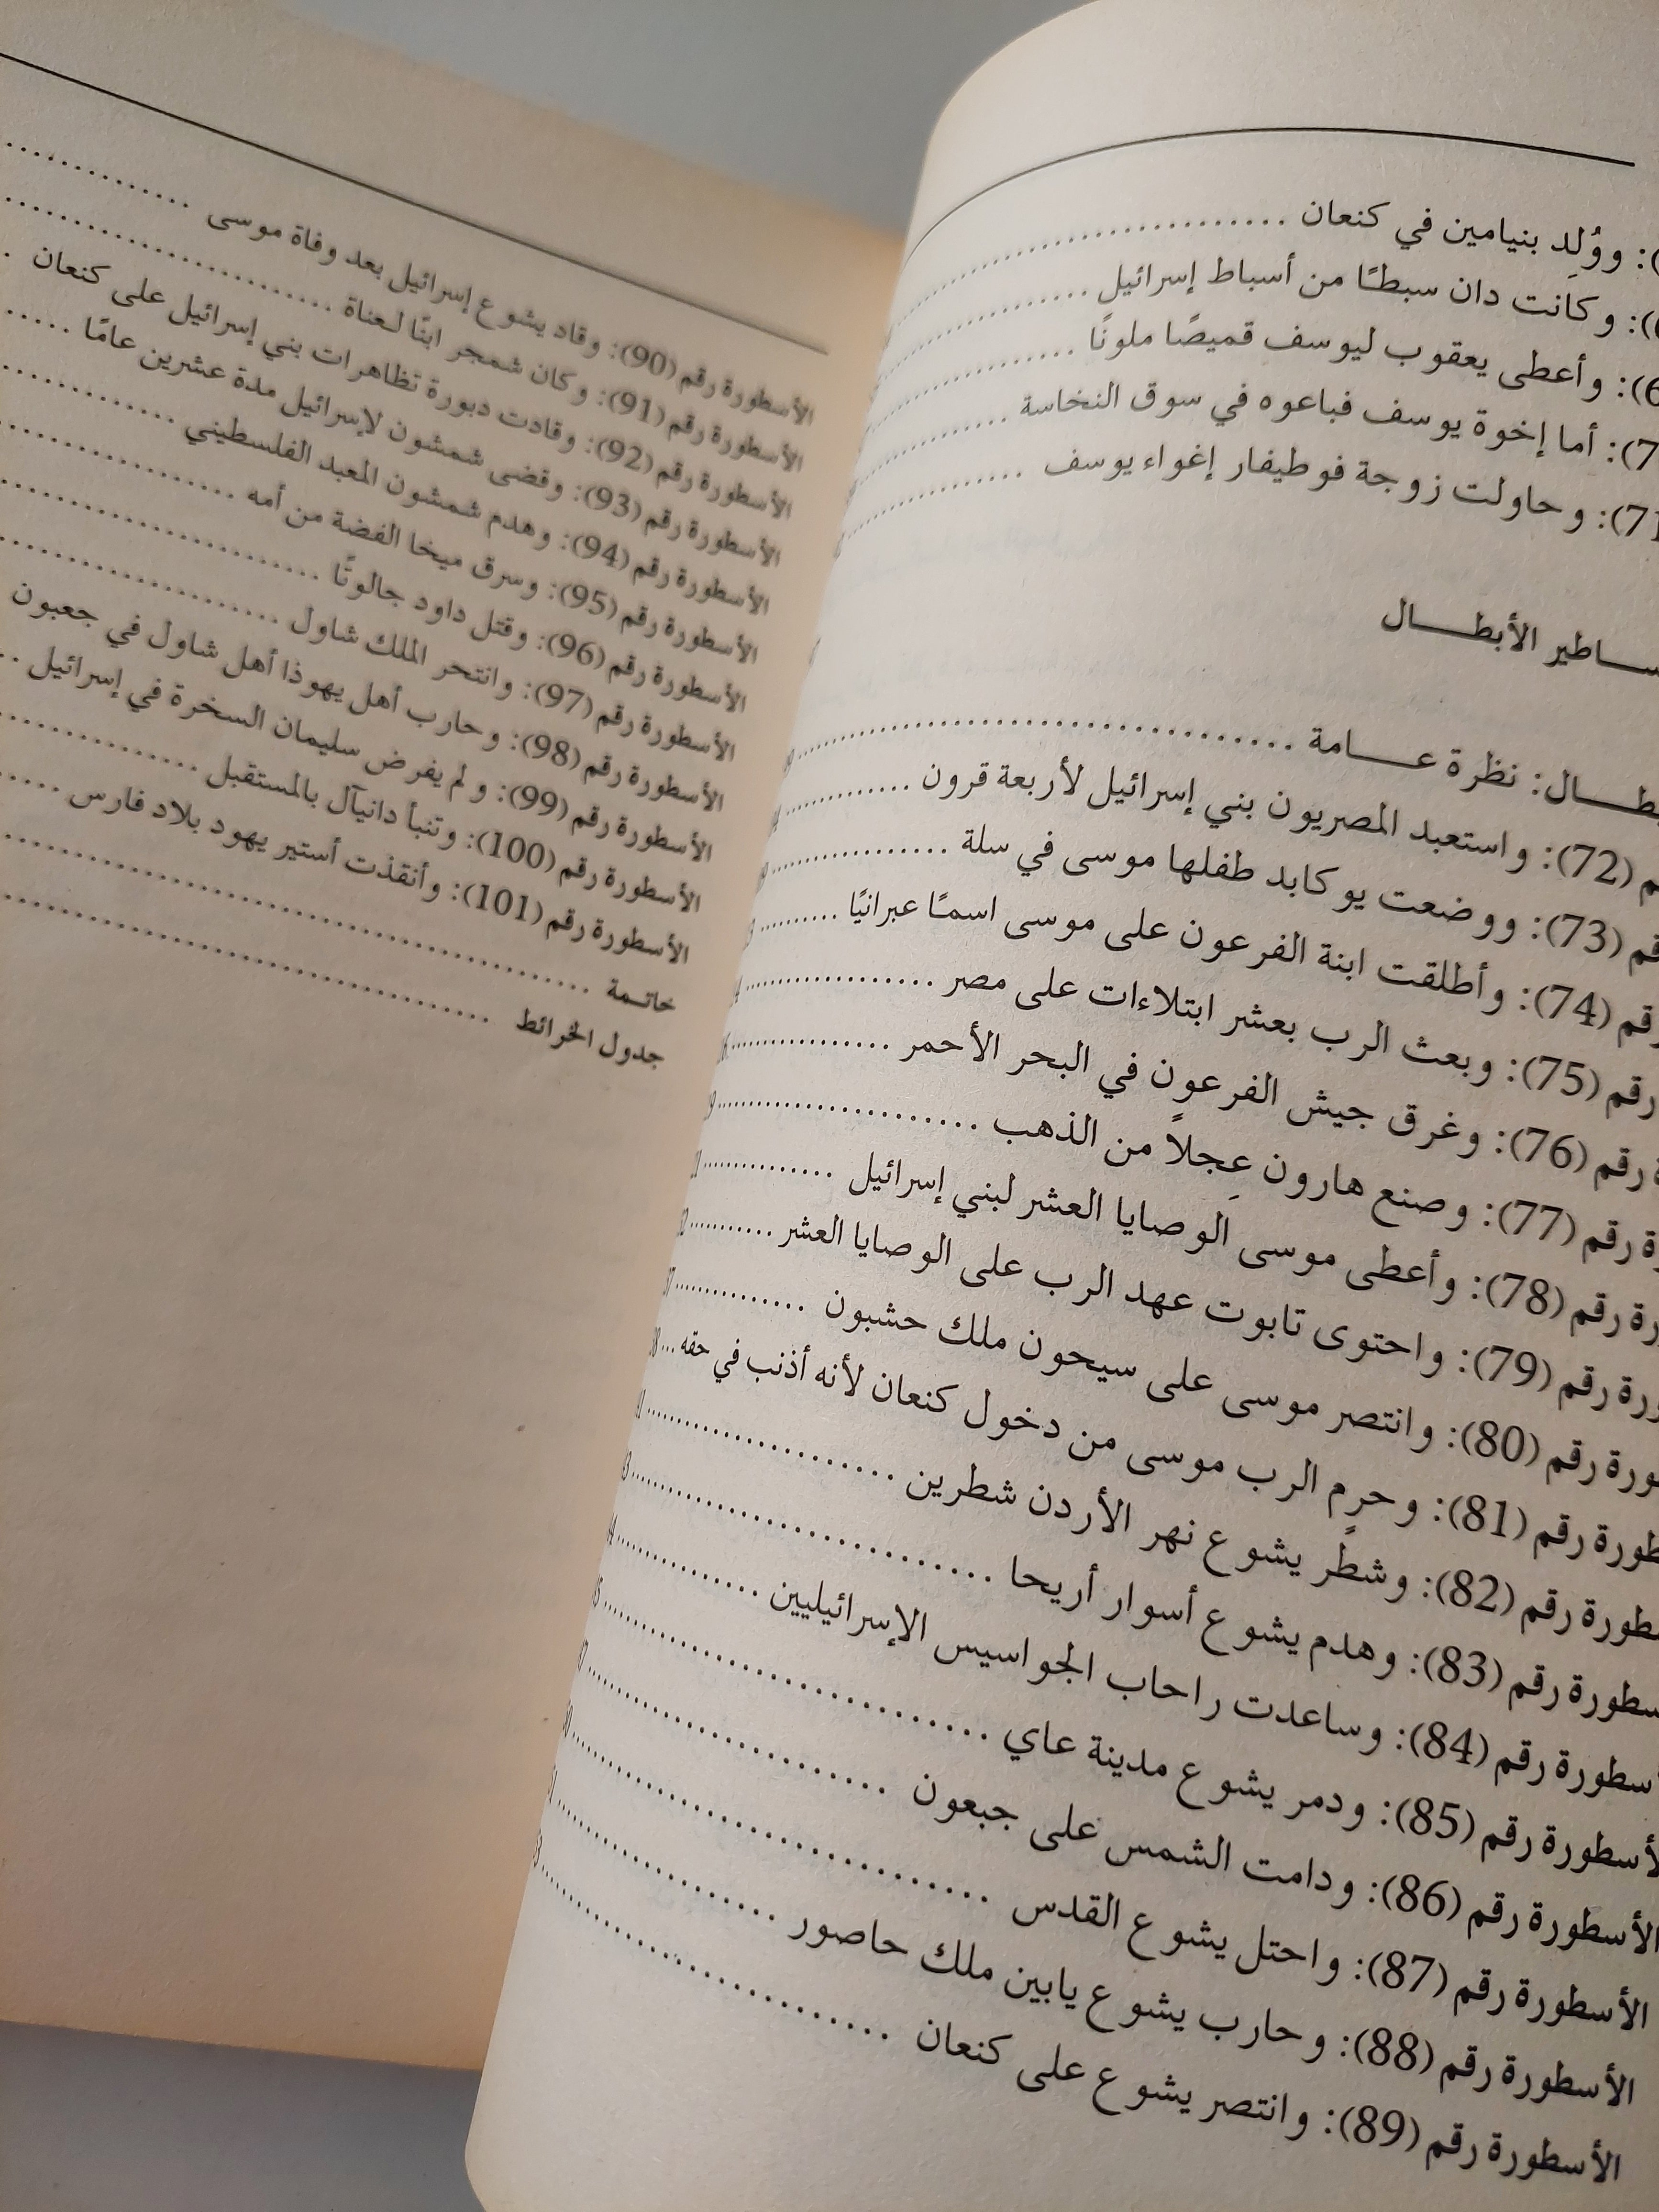 : ووُلِد بنيامين في كنعان ....................
: وكانت دان سبطًا من أسباط إسرائيل ....................
: وأعطى يعقوب ليوسف قميصًا ملونًا ....................
: أما إخوة يوسف فباعوه في سوق النخاسة ....................
(71): وحاولت زوجة فوطيفار إغواء يوسف ....................
ـساطير الأبطـال
ـطـال: نظرة عـامة ....................
ـم (72): واستعبد المصريون بني إسرائيل لأربعة قرون ....................
ـقم (73): ووضعت يوكابد طفلها موسى في سلة ....................
رقم (74): وأطلقت ابنة الفرعون على موسى اسمًا عبرانيًا ....................
رقم (75): وبعث الرب بعشر ابتلاءات على مصر ....................
ة رقم (76): وغرق جيش الفرعون في البحر الأحمر ....................
ة رقم (77): وصنع هارون عِجلاً من الذهب ....................
رة رقم (78): وأعطى موسى الوصايا العشر لبني إسرائيل ....................
ورة رقم (79): واحتوى تابوت عهد الرب على الوصايا العشر ....................
ورة رقم (80): وانتصر موسى على سيحون ملك حشبون ....................
طورة رقم (81): وحرم الرب موسى من دخول كنعان لأنه أذنب في حقه ...
طورة رقم (82): وشطر يشوع نهر الأردن شطرين ....................
سطورة رقم (83): وهدم يشوع أسوار أريحا ....................
سطورة رقم (84): وساعدت راحاب الجواسيس الإسرائيليين ....................
لأسطورة رقم (85): ودمر يشوع مدينة عاي ....................
الأسطورة رقم (86): ودامت الشمس على جبعون ....................
الأسطورة رقم (87): واحتل يشوع القدس ....................
الأسطورة رقم (88): وحارب يشوع يابين ملك حاصور ....................
الأسطورة رقم (89): وانتصر يشوع على كنعان ....................
الأسطورة رقم (90): وقاد يشوع إسرائيل بعد وفاة موسى ....................
الأسطورة رقم (91): وكان شمجر ابنًا لعناة ....................
الأسطورة رقم (92): وقادت دبورة تظاهرات بني إسرائيل على كنعان .
الأسطورة رقم (93): وقضى شمشون لإسرائيل مدة عشرين عامًا .....
الأسطورة رقم (94): وهدم شمشون المعبد الفلسطيني ....................
الأسطورة رقم (95): وسرق ميخا الفضة من أمه ....................
الأسطورة رقم (96): وقتل داود جالوتًا ....................
الأسطورة رقم (97): وانتحر الملك شاول ....................
الأسطورة رقم (98): وحارب أهل يهوذا أهل شاول في جعبون
الأسطورة رقم (99): ولم يفرض سليمان السخرة في إسرائيل ..
الأسطورة رقم (100): وتنبأ دانيآل بالمستقبل ....................
الأسطورة رقم (101): وأنقذت أستير يهود بلاد فارس .....
خاتـمة ....................
جدول الخرائط ....................